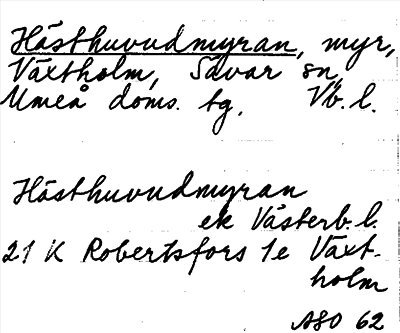 Hästhuvudmyran, myr,
Växtholm, Sävar sn,
Umeå doms. tg, Vb. l.
Hästhuvudmyran
ek Västerb. l.
21 K Robertsfors 1e Växt-
holm
ASO 62